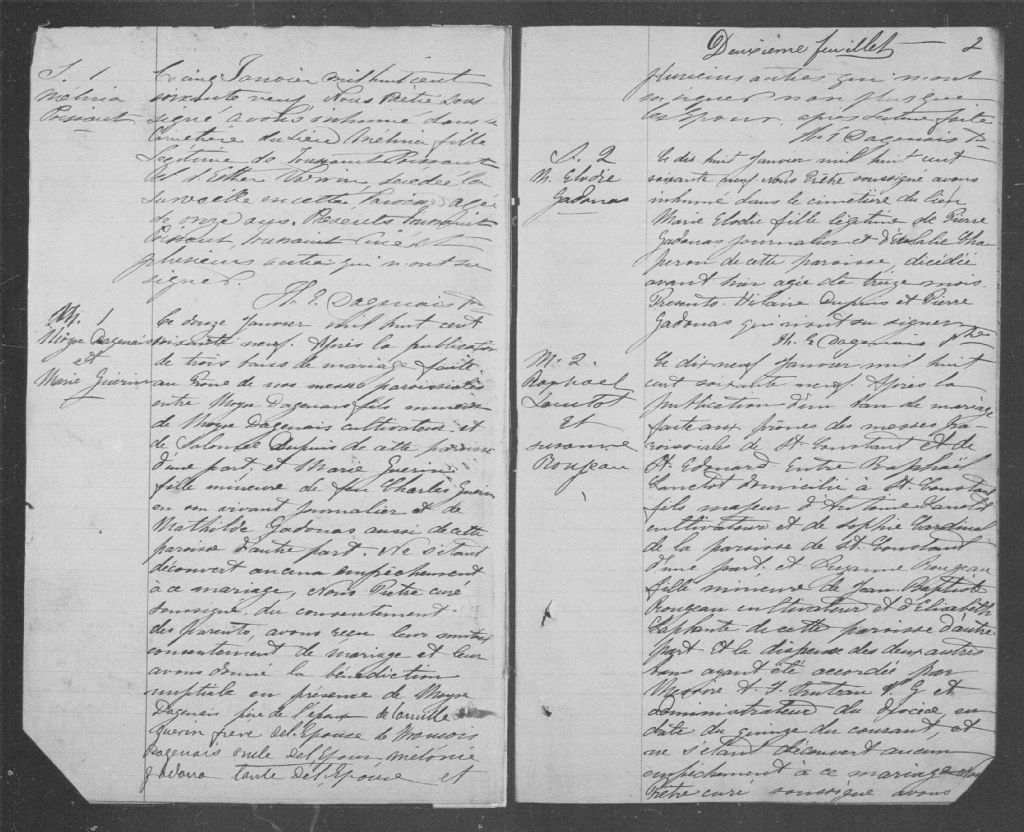 S. 1
Mélina
Poissant
Le cinq Janvier mil huit cent
soixante neuf Nous Prêtre sous
signé avons inhumé dans le
Cimetière du lieu Mélina fille
Légitime de Toussaint Poissant
et d'Esther décédée la
surveille en cette Paroisse agée
de onze ans. Présents Toussaint
Poissant, Toussaint et
plusieurs autres qui n'ont su
signer.
H. E. Dagenais Ptre
M. 1
Moyse Dagenais
et
Marie Guérin
Le douze Janvier mil huit cent
soixante neuf. Après la publication
de trois bans de mariage faite
au Prone de nos messes paroissiales
entre Moyse Dagenais fils mineur
de Moyse Dagenais cultivateur et
de Salomée Dupuis de cette paroisse
d'une part, et Marie Guerin
fille mineure de feu Charles Guerin
en son vivant journalier et de
Mathilde Gadouas aussi de cette
paroisse d'autre part. Ne s'étant
découvert aucun empêchement
à ce mariage, Nous Prêtre curé
soussigné du consentement
des parents, avons reçu leur mutuel
consentement de mariage et leur
avons donné la bénédiction
nuptiale en présence de Moyse
Dagenais père de l'époux de
Guerin frère de l'Epouse
Dagenais oncle de l'Epoux
tante de l'Epouse et
Deuxième feuillet — 2
plusieurs autres qui n'ont
su signer non plus que
les Epoux, après lecture faite
H. E Dagenais Ptre
S. 2
M. Elodie
Gadouas
Le dix huit Janvier mil huit cent
soixante neuf Nous Prêtre soussigné avons
inhumé dans le cimetière du lieu
Marie Elodie fille légitime de Pierre
Gadouas journalier et d'Eulalie Cha
peron de cette paroisse, décédée
avant hier agée de treize mois.
Présents Hilaire Dupuis et Pierre
Gadouas qui n'ont su signer
H. E Dagenais Ptre
M. 2.
Raphael
Lanctot
Et
Suzanne
Rougeau
Le dix neuf Janvier mil huit
cent soixante neuf. Après la
publication d'un ban de mariage
faite aux prônes des messes pa-
roissiales de St. Constant et de
St. Edouard. Entre Raphaël
Lanctot domicilié à St. Constant
fils majeur d'Antoine Lanctot
cultivateur et de Sophie Cardinal
de la paroisse de St. Constant
d'une part, et Suzanne Rougeau
fille mineure de Jean Baptiste
Rougeau cultivateur et d'Elisabeth
Laplante de cette paroisse d'autre
part. Et la dispense des deux autres
bans ayant été accordée par
Messire A. F. Truteau V. G et
administrateur du diocèse en
date du quinze du courant, et
ne s'étant découvert aucun
empêchement à ce mariage Nous
Prêtre curé soussigné avons